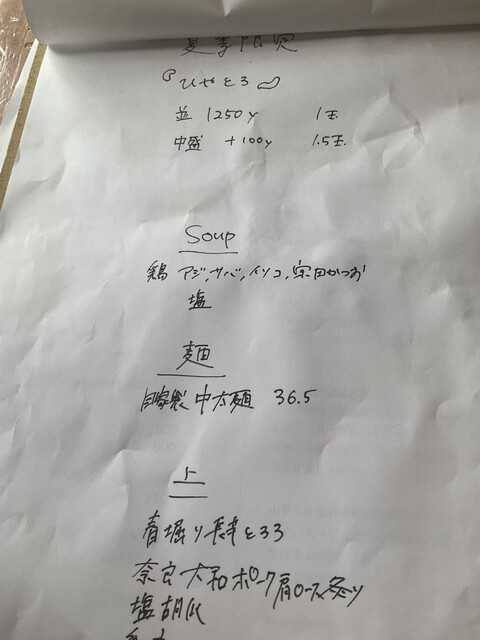 夏季限定
ひやとろ
並 1250y 1玉.
中盛 +100y 1.5玉.
Soup
鶏 アジ,サバ,イリコ,宗田かつお
塩
麺
自家製 中太麺 36.5
上
春堀り長芋とろろ
奈良大和ポーク肩ロース炙り
塩胡瓜